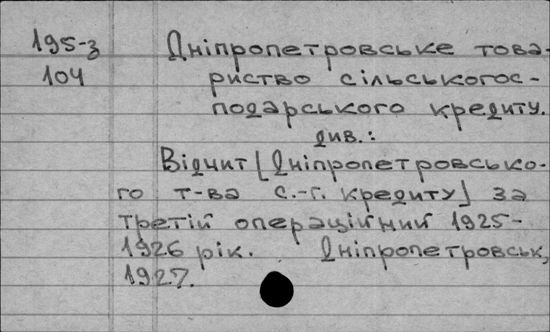 195-з Дніпропетровське това-
104 риство сільськогос-
подарського кредиту.
див.:
Відчит [Дніпропетровсько-
го т-ва с.-г. кредиту] за
третій операційний 1925-
1926 рік. Дніпропетровськ,
1927.